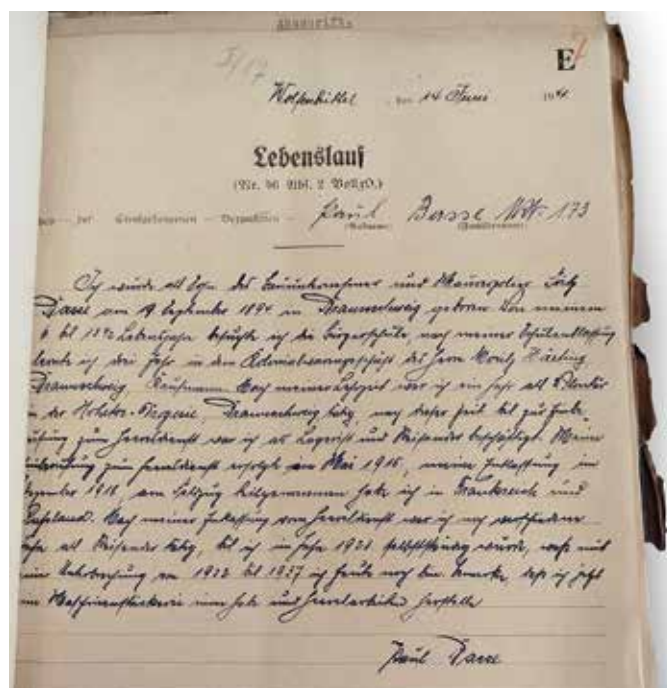 Abschrift.
I/17
E 7
Wolfenbüttel, den 14 Juni 194
Lebenslauf
(Nr. 56 Abs. 2 VollzO.)
des — der Strafgefangenen — Verwahrten — Paul Basse Nr. 173
(Vorname) (Familienname)
Ich wurde als Sohn des Bauunternehmer und Maurerpolier Fritz
Basse am 9 September 1894 in Braunschweig geboren Von meinem
6 bis 13½ Lebensjahre besuchte ich die Bürgerschule, nach meiner Schulentlassung
lernte ich drei Jahr in dem Kolonialwarengeschäft des Herrn Moritz
Braunschweig, Kaufmann Nach meiner Lehrzeit war ich ein Jahr als Volontär
in der Drogerie, Braunschweig tätig, nach dieser Zeit bis zur
zum Heeresdienst war ich als Lagerist und Reisender beschäftigt. Meine
Einberufung zum Heeresdienst erfolgte am Mai 1915, meine Entlassung im
Dezember 1918, am Feldzug teilgenommen habe ich in Frankreich und
Russland. Nach meiner Entlassung vom Heeresdienst war ich noch verschiedene
Jahre als Reisender tätig, bis ich im Jahre 1921 selbstständig wurde, was mit
Unterbrechung von 1932 bis 1937 ich heute noch bin. Bemerke, daß ich jetzt
eine Maschinenstickerei inne habe und Heeresarbeiten herstelle
Paul Basse